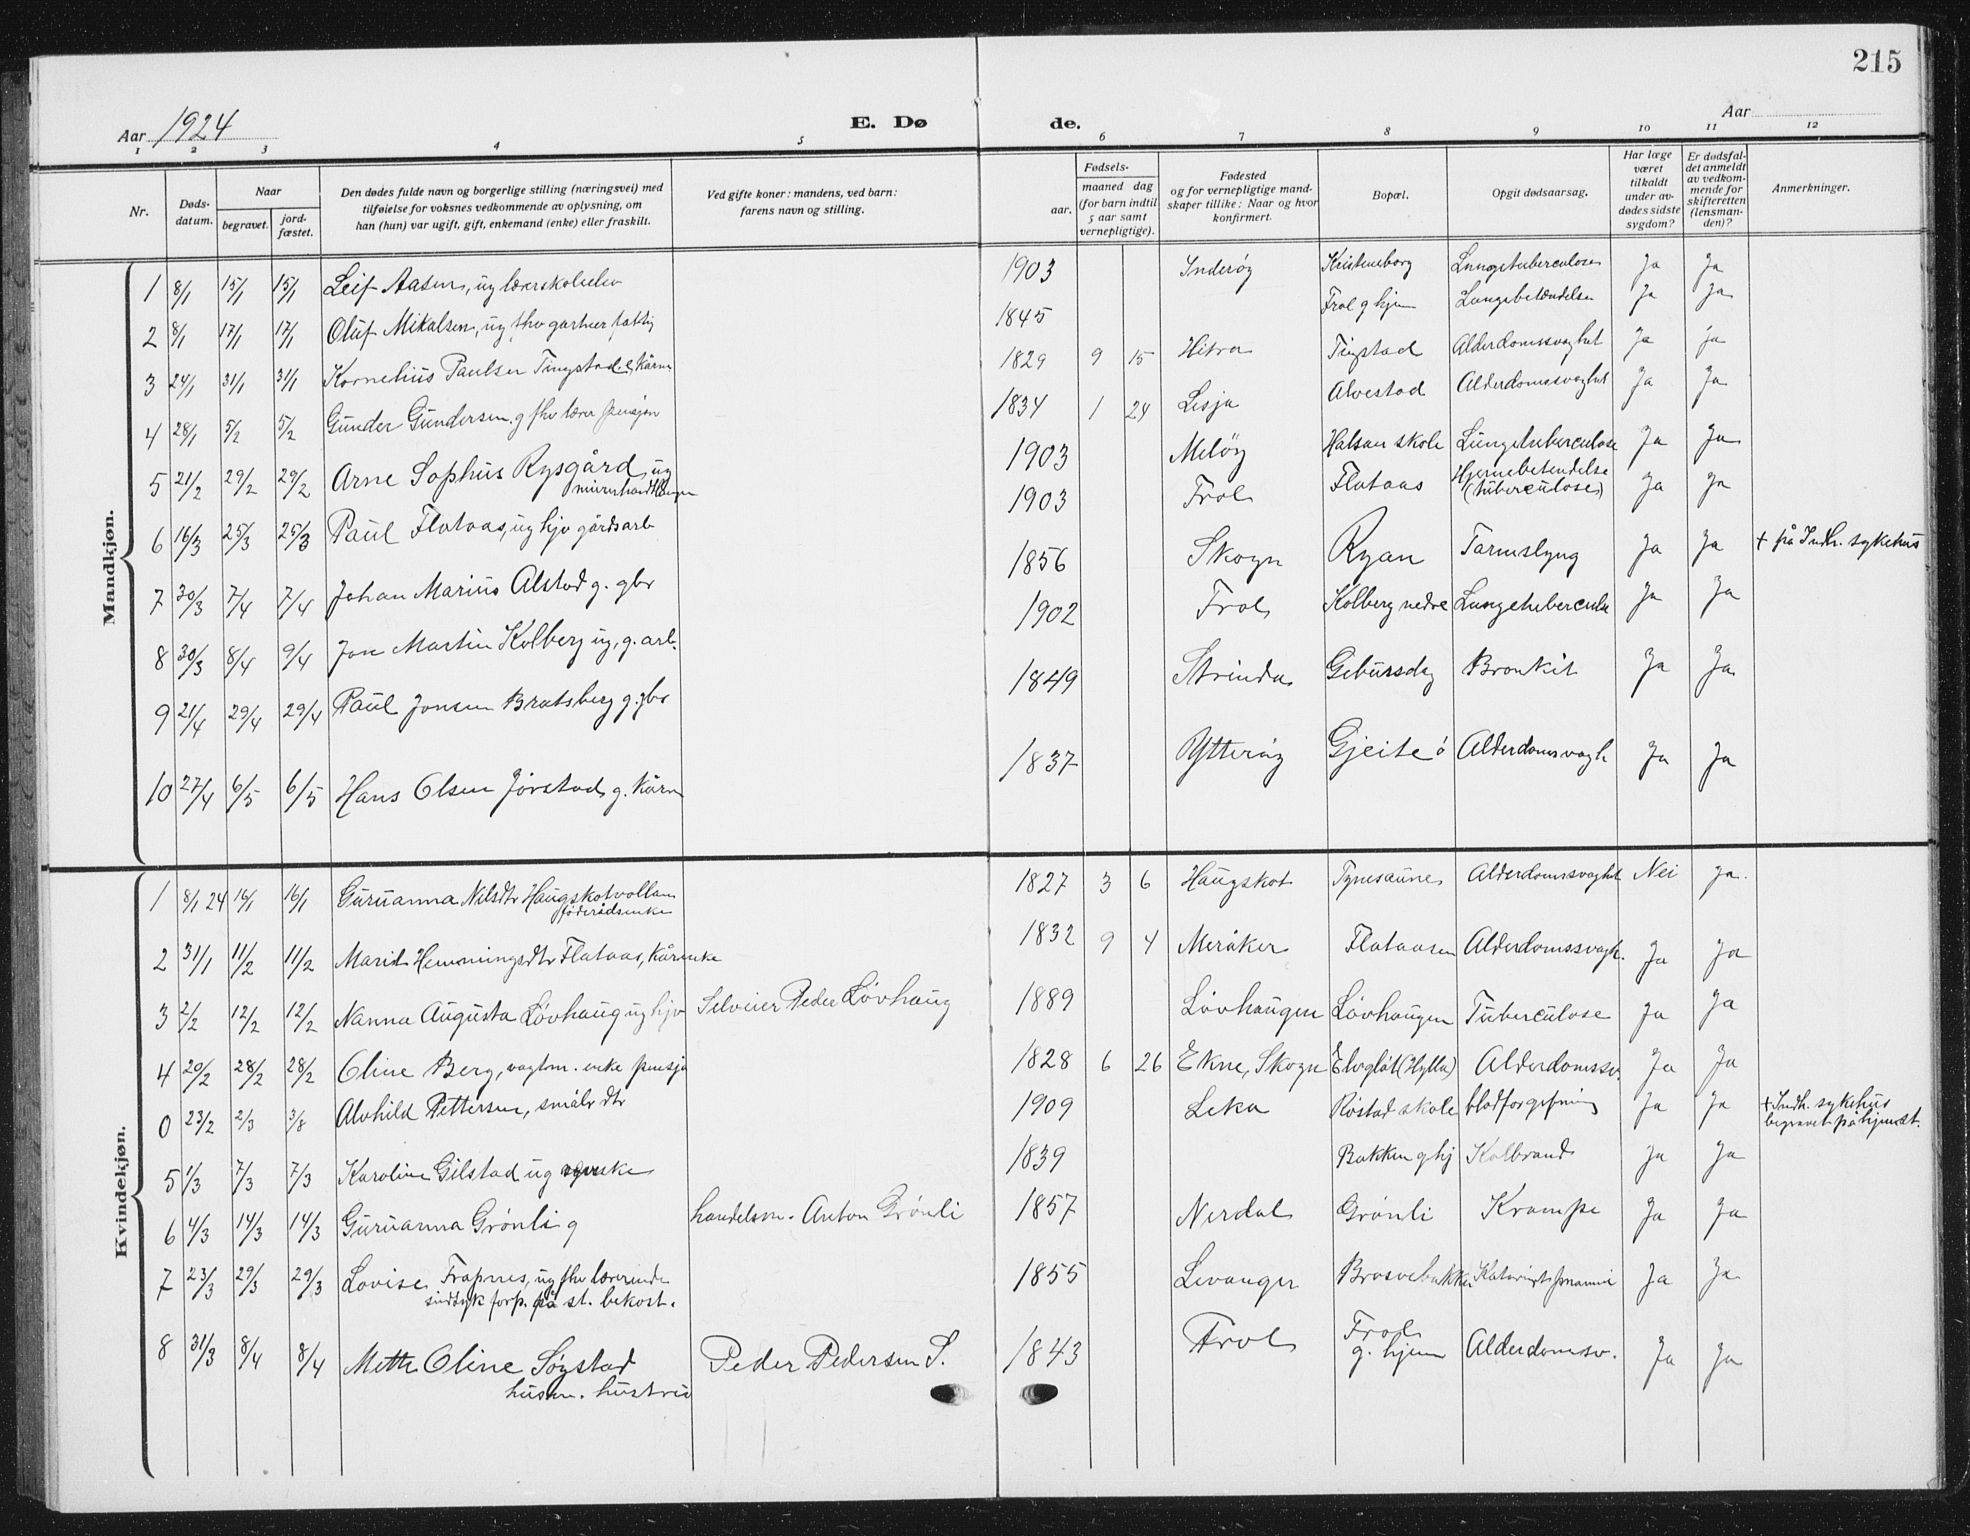 215
Aar 1924
E. Dø
de.
Aar
1 2 3 4 5 6 7 8 9 10 11 12
Nr.
Døds-
datum.
Naar
begravet.
jord-
fæstet.
Den dødes fulde navn og borgerlige stilling (næringsvei) med
tilføielse for voksnes vedkommende av oplysning, om
han (hun) var ugift, gift, enkemand (enke) eller fraskilt.
Ved gifte koner: mandens, ved barn:
farens navn og stilling.
Fødsels-
aar.
maaned dag
(for barn indtil
5 aar samt
vernepligtige).
Fødested
og for vernepligtige mand-
skaper tillike: Naar og hvor
konfirmert.
Bopæl.
Opgit dødsaarsag.
Har læge
været
tilkaldt
under av-
dødes sidste
sygdom?
Er dødsfal-
det anmeldt
av vedkom-
mende for
skifteretten
(lensman-
den)?
Anmerkninger.
Mandkjøn.
1 8/1 15/1 15/1 Leif Aasen, ug lærerskoleelev 1903 Inderøy Lungetuberculose Ja Ja
2 8/1 17/1 17/1 Oluf Mikalsen, ug fhv gartner fattig 1845 Frol g hjem Lungebetændelse Ja Ja
3 24/1 31/1 31/1 Kornelius Paulsen Tingstad 1829 9 15 Hitra Tingstad Alderdomssvaghet Ja ja
4 28/1 5/2 5/2 Gunder Gundersen g fhv lærer pensjon 1834 1 24 Lesja Alvestad Alderdomssvaghet Ja Ja
5 21/2 29/2 29/2 Arne Sophus Rysgård, ug 1903 Meløy Halsan skole Lungetuberculose Ja Ja
6 16/3 25/3 25/3 Paul Flataas, ug hjv gårdsarb 1903 Frol Flataas Hjernebetendelse
(tuberculose) Ja Ja
7 30/3 7/4 7/4 Johan Marius Alstad g. gbr 1856 Skogn Ryan Tarmslyng Ja Ja + på Indh. sykehus
8 30/3 8/4 9/4 Jon Martin Kolberg ug, g. arb. 1902 Frol Kolberg nedre Lungetubercula Ja Ja
9 21/4 29/4 29/4 Paul Jonsen Bratsberg g. gbr 1849 Strinda Gebursdag Bronkit Ja Ja
10 27/4 6/5 6/5 Hans Olsen Jørstad g. kårm 1837 Ytterøy Gjeite ø Alderdomsvagh Ja Ja
Kvindekjøn.
1 8/1 24 16/1 16/1 Guruanna Nilsdtr Haugskotvollan
föderådsenke 1827 3 6 Haugskot Tynesaune Alderdomssvaghet Nei Ja.
2 31/1 11/2 11/2 Marit Hemmingsdtr Flataas, kårenke 1832 9 4 Meråker Flataasen Alderdomssvagh. Ja Ja
3 2/2 12/2 12/2 Nanna Augusta Løvhaug ug hjv Selveier Peder Løvhaug 1889 Løvhaugen Løvhaugen Tuberculose Ja Ja
4 20/2 28/2 28/2 Oline Berg, vagtm. enke pensjo 1828 6 26 Ekne, Skogn Elvglöt (Hylla) Alderdomssv. Ja Ja
0 23/2 2/3 3/8 Alvhild Pettersen, småbr dtr 1909 Leka Røstad skole blodforgifning Ja Ja + Indh. sykehus
begravet på hjemst.
5 1/3 7/3 7/3 Karoline Gilstad ug 1839 Bakken g hj Kolbrand Ja Ja
6 4/3 14/3 14/3 Guruanna Grønli g handelsm. Anton Grønli 1857 Nerdal Grønli Krampe Ja Ja
7 23/3 29/3 29/3 Lovise Frapnes, ug fhv lærerinde
sindsyk forp. på st. bekost. 1855 Levanger Ja Ja
8 31/3 8/4 8/4 Mette Oline Søgstad
husm. hustru Peder Pedersen S. 1843 Frol Frol
g. hjem Alderdomsv. Ja Ja